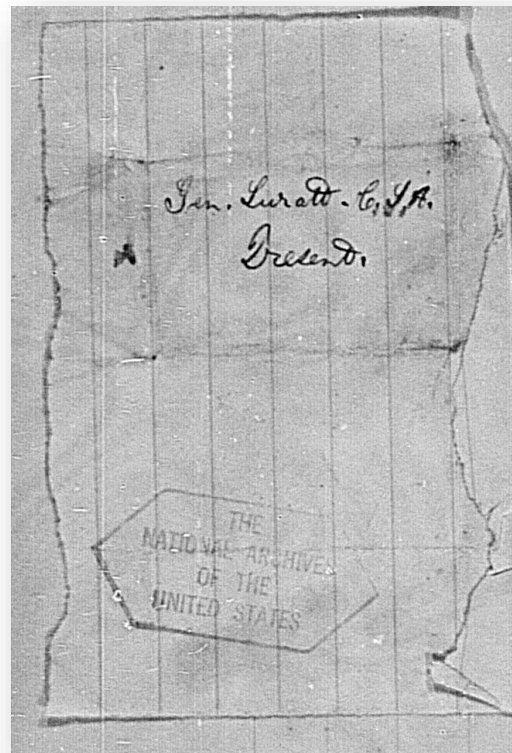 Gen. Suratt. C.S.A.
Present.
THE
NATIONAL ARCHIVES
OF THE
UNITED STATES